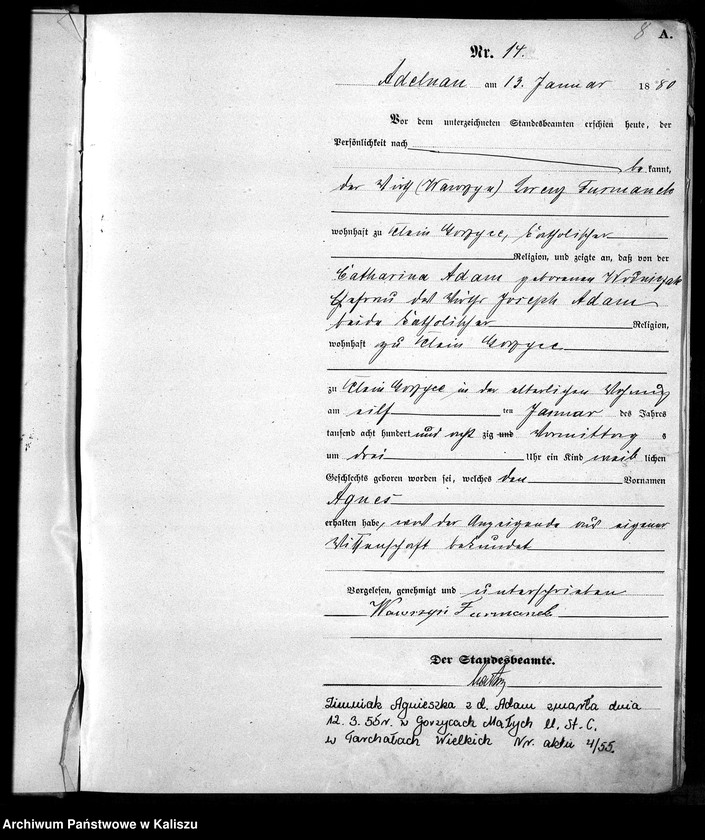 8 A.
Nr. 14.
Adelnau am 13. Januar 1880
Vor dem unterzeichneten Standesbeamten erschien heute, der
Persönlichkeit nach
bekannt,
der Wirth (Wawrzyn) Lorenz Furmanek
wohnhaft zu Klein Gorzyce, Katholischer
Religion, und zeigte an, daß von der
Catharina Adam geborenen
Ehefrau des Wirths Joseph Adam
beide Katholischer Religion,
wohnhaft zu Klein Gorzyce
zu Klein Gorzyce in der elterlichen Wohnung
am eilf ten Januar des Jahres
tausend acht hundert und acht zig und Vormittags
um drei Uhr ein Kind weib lichen
Geschlechts geboren worden sei, welches den Vornamen
Agnes
erhalten habe, was der Anzeigende aus eigener
Wissenschaft bekundet
Vorgelesen, genehmigt und unterschrieben
Wawrzyn Furmanek
Der Standesbeamte.
Zimniak Agnieszka z d. Adam zmarła dnia
12.3.55r. w Gorzycach Małych U. St. C.
w Tarchałach Wielkich Nr. aktu 4/55.
Archiwum Państwowe w Kaliszu